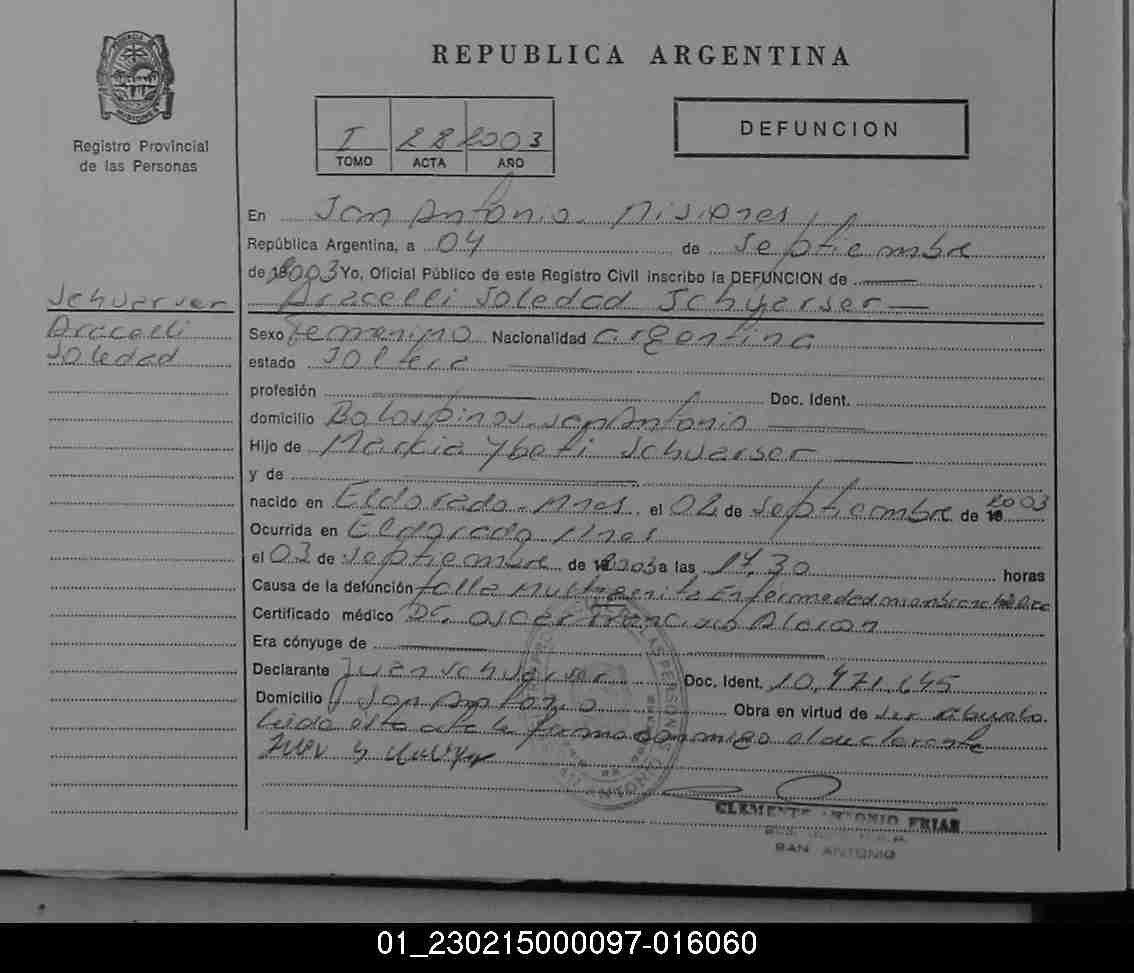 REPUBLICA ARGENTINA
Registro Provincial
de las Personas
I 28 2003
TOMO ACTA AÑO
DEFUNCION
En San Antonio Misiones
República Argentina, a 04 de Septiembre
de 2003 Yo, Oficial Público de este Registro Civil inscribo la DEFUNCION de
Aracelli Soledad Schuerser
Schuerver
Aracelli
Soledad
Sexo Femenino Nacionalidad Argentina
estado Soltera
profesión Doc. Ident.
domicilio San Antonio
Hijo de Schuerser
y de
nacido en Eldorado - Mnes el 02 de Septiembre de 2003
Ocurrida en Eldorado Mnes
el 03 de Septiembre de 2003 a las 17,30 horas
Causa de la defunción falla Enfermedad
Certificado médico Dr. Oscar Francisco
Era cónyuge de
Declarante Juan Schuerser Doc. Ident. 10,471,645
Domicilio San Antonio Obra en virtud de ser abuelo.
Leida esta acta la firma conmigo el declarante
CLEMENTE ANTONIO FRIAS
SAN ANTONIO
01_230215000097-016060